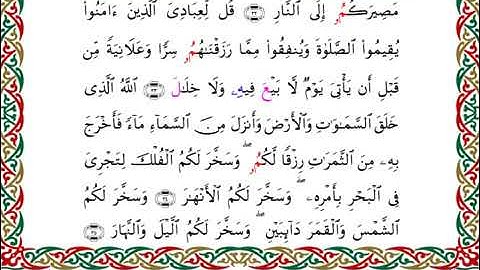 مَصِيرَكُمُۥ إِلَى ٱلنَّارِ ۝٣٢ قُل لِّعِبَادِىَ ٱلَّذِينَ ءَامَنُواْ
يُقِيمُواْ ٱلصَّلَوٰةَ وَيُنفِقُواْ مِمَّا رَزَقْنَٰهُمُۥ سِرًّا وَعَلَانِيَةً مِّن
قَبْلِ أَن يَأْتِىَ يَوْمٌ لَّا بَيْعَ فِيهِۦ وَلَا خِلَٰلَ ۝٣٣ ٱللَّهُ ٱلَّذِى
خَلَقَ ٱلسَّمَٰوَٰتِ وَٱلْأَرْضَ وَأَنزَلَ مِنَ ٱلسَّمَآءِ مَآءً فَأَخْرَجَ
بِهِۦ مِنَ ٱلثَّمَرَٰتِ رِزْقًا لَّكُمُۥ ۖ وَسَخَّرَ لَكُمُ ٱلْفُلْكَ لِتَجْرِىَ
فِى ٱلْبَحْرِ بِأَمْرِهِۦ ۖ وَسَخَّرَ لَكُمُ ٱلْأَنْهَٰرَ ۝٣٤ وَسَخَّرَ لَكُمُ
ٱلشَّمْسَ وَٱلْقَمَرَ دَآئِبَيْنِ ۖ وَسَخَّرَ لَكُمُ ٱلَّيْلَ وَٱلنَّهَارَ ۝٣٥